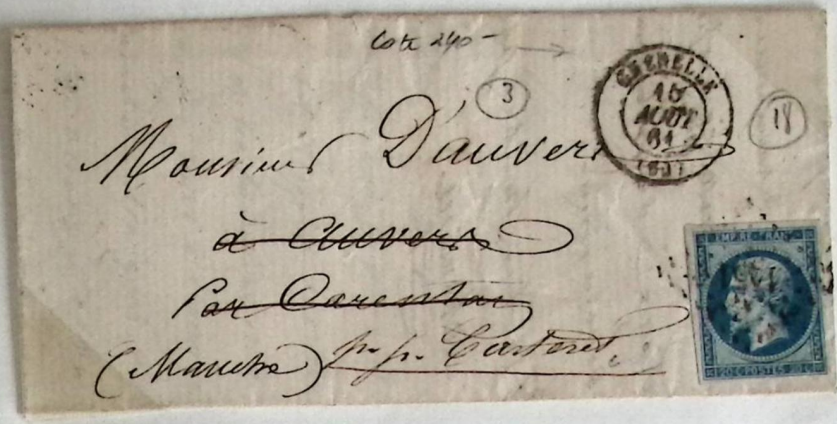 Cote 240-
GRENELLE
3
18
AOUT
61
(60)
Monsieur D'auvers
à Auvers
Par Carentan
(Manche) p. p. Carteret
EMPIRE FRANC
20 C POSTES 20 C